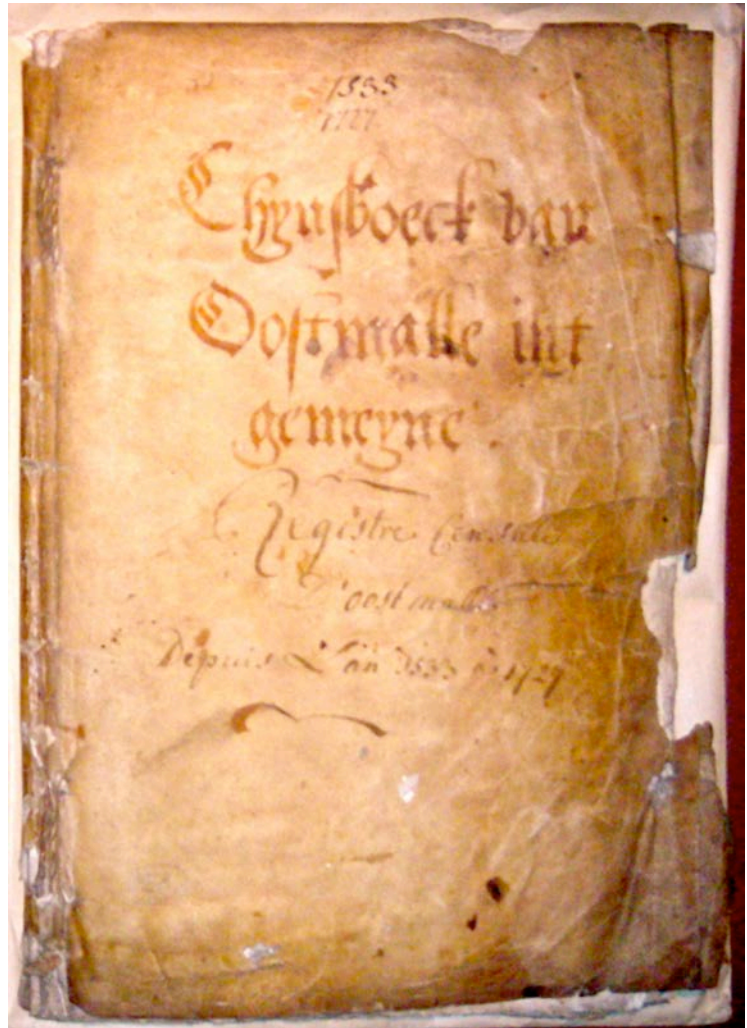 1533
1727
Chynsboeck van
Oostmalle int
gemeyne.
Registre Censale
D'oostmalle
Depuis L'an 1533 a 1727